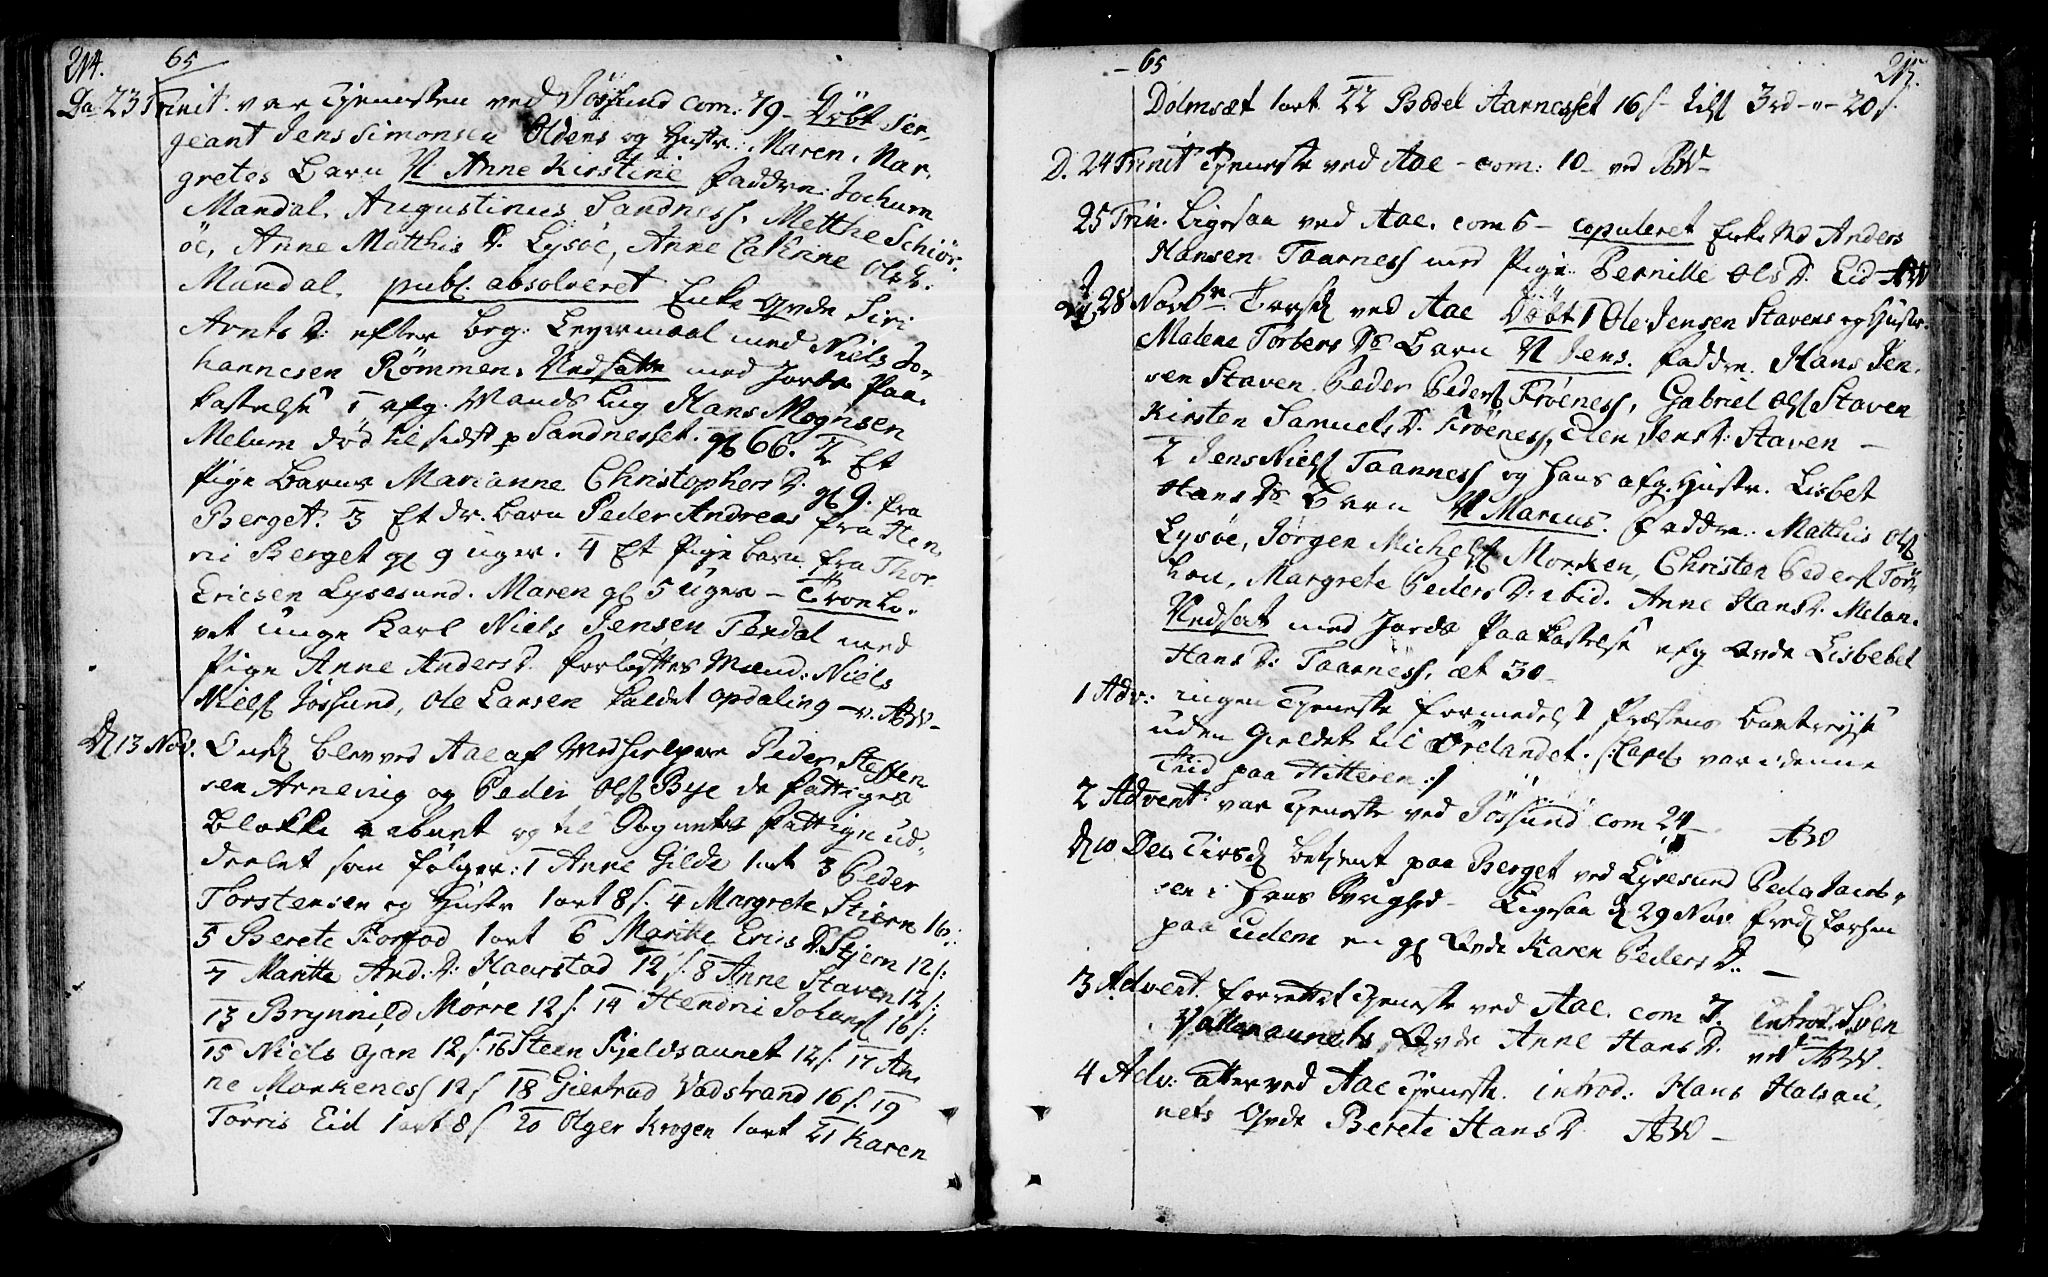 214. 65
Da 23 Trinit. var Tjenesten ved Jössund com: 79 – Döbt Ser-
geant Jens Simonsen Oldens og Hustr: Maren Mar-
gretes Barn N Anne Kirstine Faddre: Jochum
Mandal, Augustinus Sandness, Metthe Schiör-
öe, Anne Matthis D. Lysöe, Anne Catrine Ols D.
Mandal. publ. absolveret Enke Qvde Siri
Arnts D: efter beg: Leyermaal med Niels Jo-
hannesen Römmen. Nedsatte med Jords Paa-
kastelse 1 afg. Mands Lug Hans Mognsen
Melum död til sidst p Sandnesset. gl 66. 2 Et
Pige Barn Marianne Christophers D. gl 9. fra
Berget. 3 Et dr. barn Peder Andreas fra Hen-
ric Berget gl 9 uger. 4 Et Pige barn fra Thor
Ericsen Lysesund. Maren gl 5 uger – Trolo-
vet unge Karl Niels Jensen Terdal med
Pige Anne Anders D. Forlofftes Mænd: Niels
Niels Jössund, Ole Larsen kaldet Opdaling – v. ABW –
D 13 Nov. Onsd blev ved Aae af Medhielpere Peder Steffen-
sen Arnevig og Peder Ols Bye de fattiges
Blokke aabnet og til Sognets Fattige ud-
deelet som fölger: 1 Anne Gilde 1 ort 3 Peder
Torstensen og Hustr 1 ort 8 s. 4 Margrete Stiern 16:
5 Berete Forfod 1 ort 6 Marite Erics D. Stjern 12 s:
7 Marite And: D: Haarstad 12 s. 8 Anne Staven 12 s:
13 Brynnild Mörre 12 s. 14 Hendric Johans 16 s:
15 Niels Ojan 12 s. 16 Steen Fjeldsaunet 12 s. 17 An-
ne Markeness 12 s 18 Giertrud Vadstrand 16 s. 19
Torris Eid 1 ort 8 s 20 Olger Krogen 1 ort 21 Karen
– 65 215.
Dolmsæt 1 ort 22 Bodel Aarnesset 16 s – 3 rd – " – 20 s.
D. 24 Trinit Tjeneste ved Aae – com: 10 – ved ABW –
25 Trin. Ligesaa ved Aae. com 6 – copuleret Enke Md Anders
Hansen Taarness med Pige Pernille Ols D. Eid – ABW
D 28 Novbr. Torsd ved Aae Döbt 1 Ole Jensen Stavens og Hustr.
Malene Torbers Ds Barn N Jens. Faddre. Hans Jen-
sen Staven Peder Peders Fröeness, Gabriel Ols Staven
Kirsten Samuels D. Fröeness, Elen Jens D: Staven –
2 Jens Niels Taarness og hans afg. Hustr. Lisbet
Hans Ds Barn N Marcus. Faddre. Matthis Ols
Lysöe, Jörgen Michels Morken, Christen Peders Tör-
hou, Margrete Peders D: ibid. Anne Hans D. Melan.
Nedsat med Jords Paakastelse afg Qvde Lisbebet
Hans D: Taarness, æt 30 –
1 Adv: ingen Tjeneste formedelst Præstens bortreyse
uden Gieldet til Örelandet. /: Capel. var i denne
Tiid paa Hitteren :/
2 Advent var Tjeneste ved Jössund com 24 – ABW
D 10 Dec. Tirsd betjent paa Berget ved Lysesund Peder Jacob-
sen i hans Svaghed – Ligesaa D 29 Nov. Fred
paa Udem en gl Qvde Karen Peders D. –
3 Advent. forrettet Tjeneste ved Aae. com 7. introd. Sven
Vallersaunets Qvde Anne Hans D. ved ABW.
4 Adv: atter ved Aae Tjeneste. introd: Hans Halsau-
nets Qvde Berete Hans D ABW –